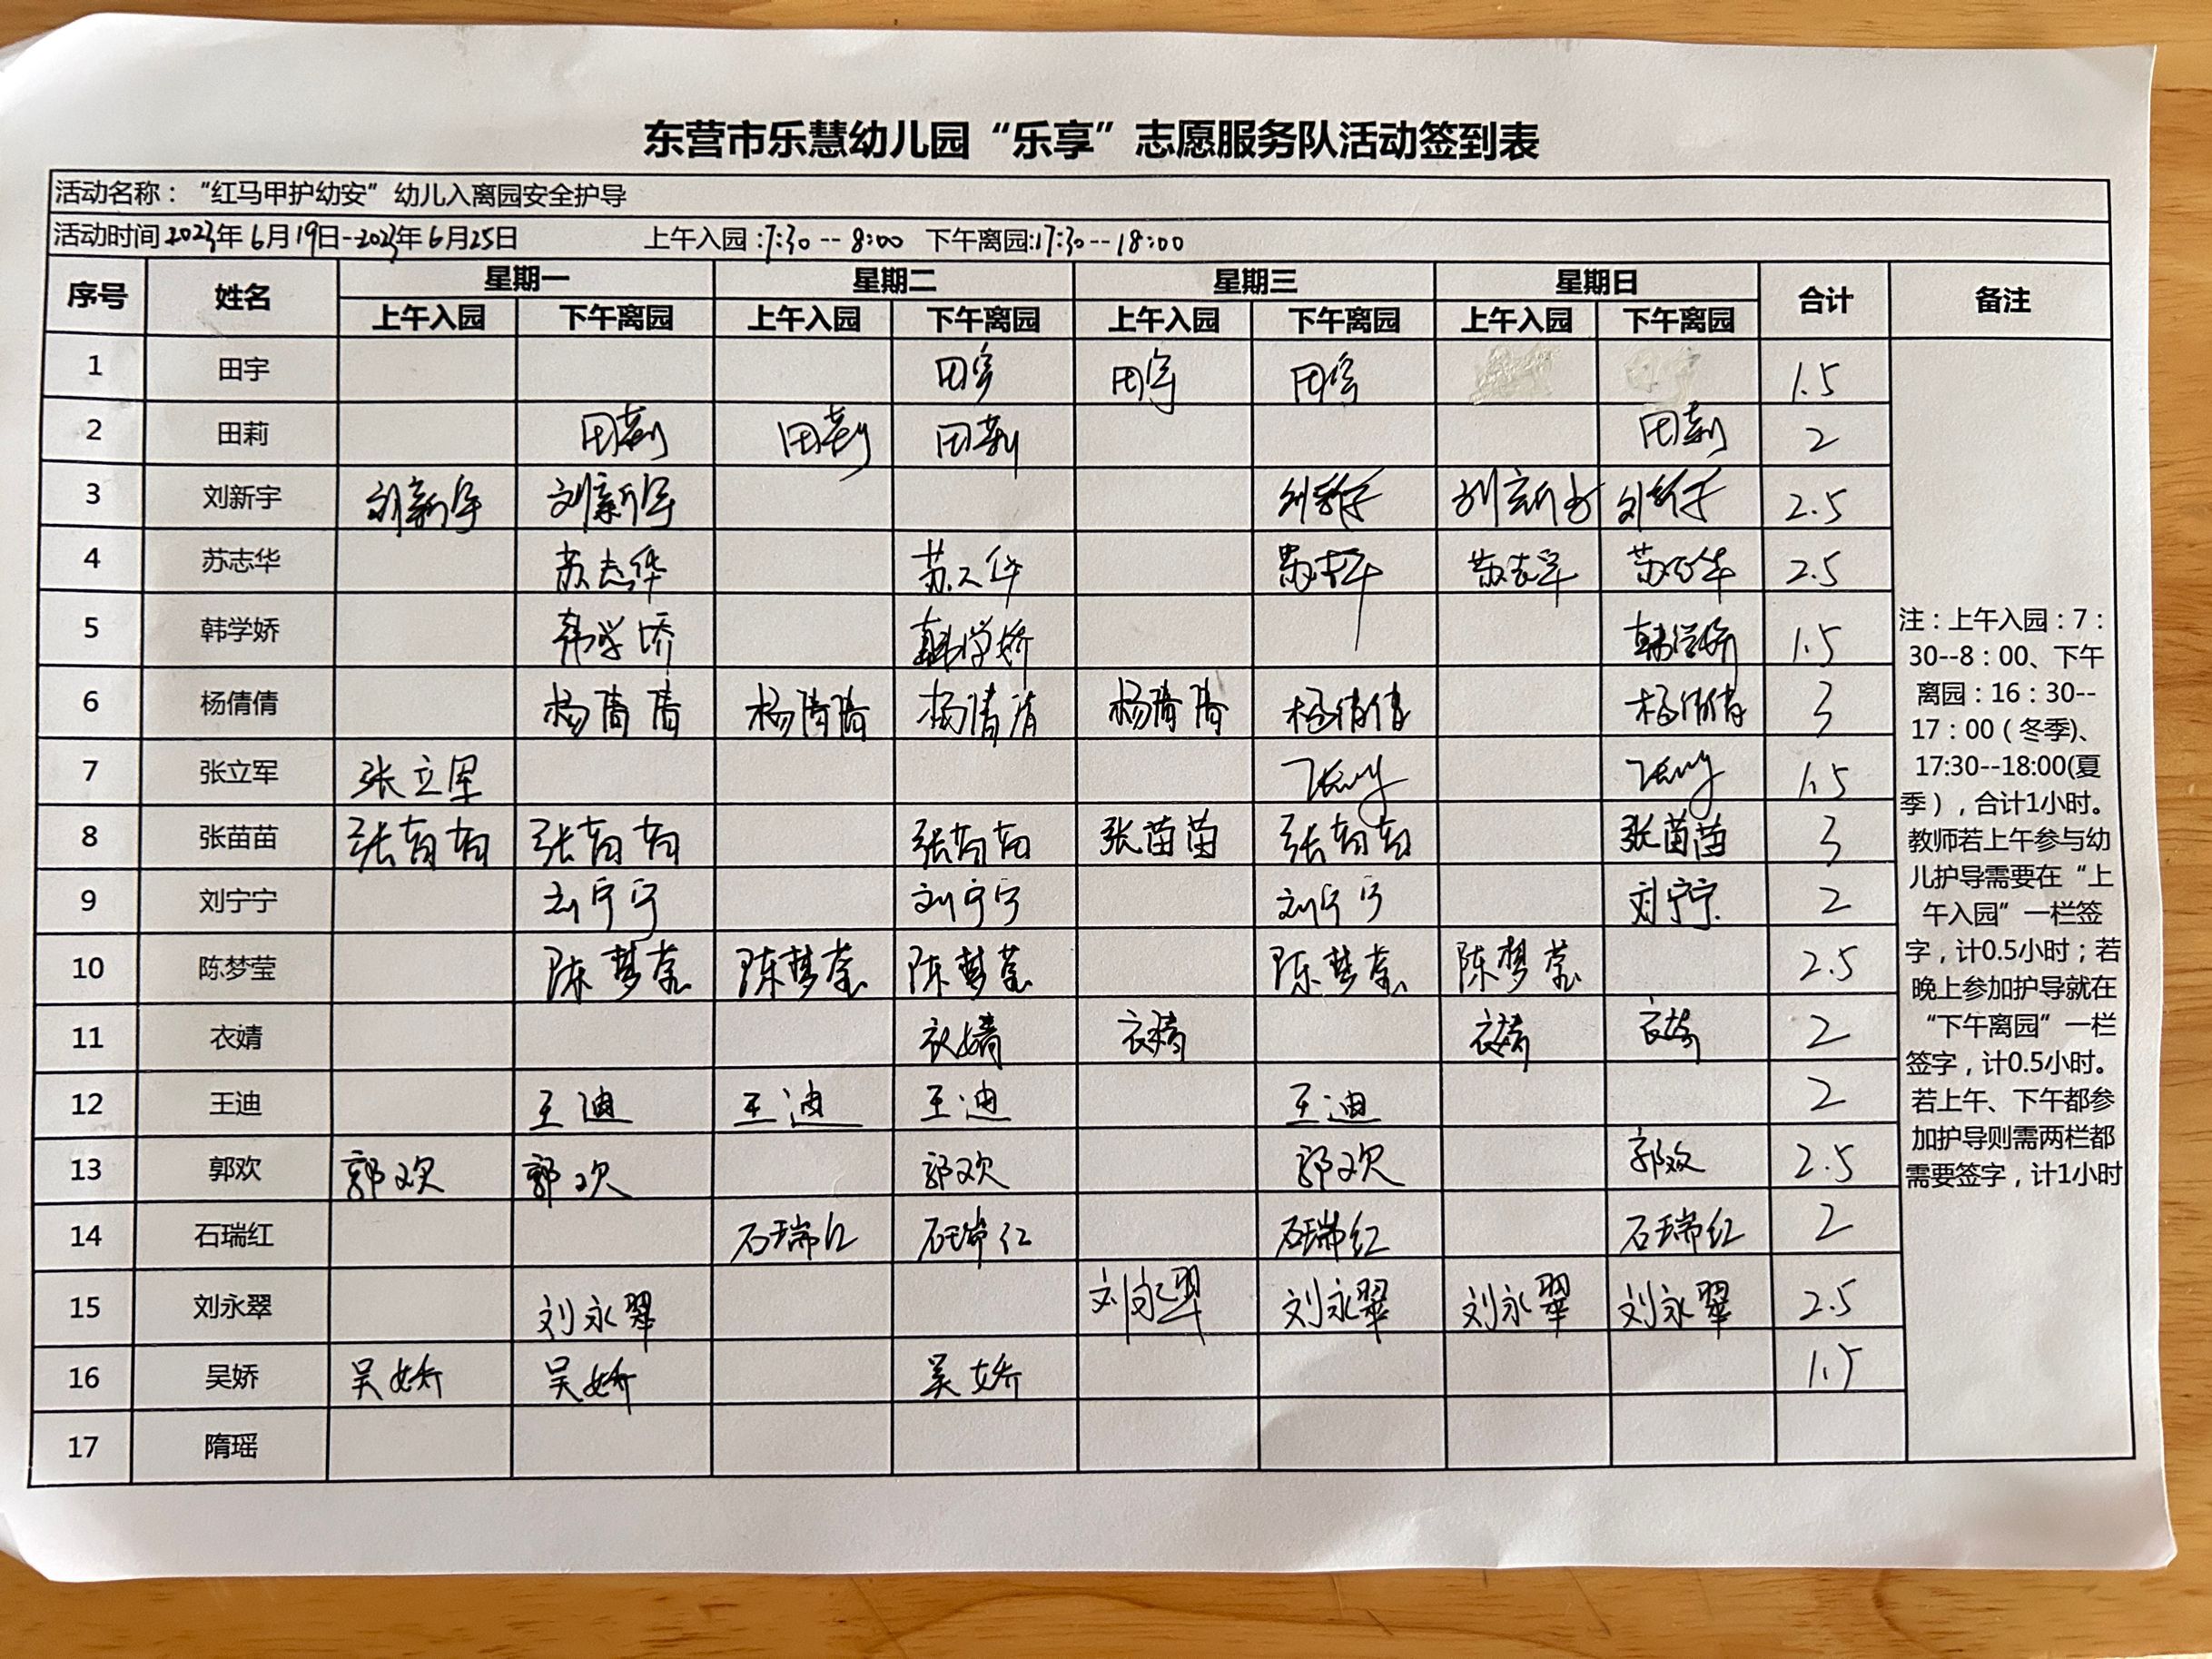 东营市乐慧幼儿园“乐享”志愿服务队活动签到表
活动名称：“红马甲护幼安”幼儿入离园安全护导
活动时间2023年6月19日--2023年6月25日 上午入园:7:30--8:00 下午离园:17:30--18:00
序号 姓名 星期一 星期二 星期三 星期日 合计 备注
上午入园 下午离园 上午入园 下午离园 上午入园 下午离园 上午入园 下午离园
1 田宇 田宇 田宇 田宇 1.5
2 田莉 田莉 田莉 田莉 田莉 2
3 刘新宇 刘新宇 刘新宇 刘新宇 刘新宇 刘新宇 2.5
4 苏志华 苏志华 苏志华 苏志华 苏志华 苏志华 2.5
5 韩学娇 韩学娇 韩学娇 韩学娇 1.5
6 杨倩倩 杨倩倩 杨倩倩 杨倩倩 杨倩倩 杨倩倩 杨倩倩 3
7 张立军 张立军 1.5
8 张苗苗 张苗苗 张苗苗 张苗苗 张苗苗 张苗苗 张苗苗 3
9 刘宁宁 刘宁宁 刘宁宁 刘宁宁 刘宁宁 2
10 陈梦莹 陈梦莹 陈梦莹 陈梦莹 陈梦莹 陈梦莹 2.5
11 衣婧 衣婧 衣婧 衣婧 衣婧 2
12 王迪 王迪 王迪 王迪 王迪 2
13 郭欢 郭欢 郭欢 郭欢 郭欢 郭欢 2.5
14 石瑞红 石瑞红 石瑞红 石瑞红 石瑞红 2
15 刘永翠 刘永翠 刘永翠 刘永翠 刘永翠 刘永翠 2.5
16 吴娇 吴娇 吴娇 吴娇 1.5
17 隋瑶
注：上午入园：7：
30--8：00、下午
离园：16：30--
17：00（冬季)、
17:30--18:00(夏
季），合计1小时。
教师若上午参与幼
儿护导需要在“上
午入园”一栏签
字，计0.5小时；若
晚上参加护导就在
“下午离园”一栏
签字，计0.5小时。
若上午、下午都参
加护导则需两栏都
需要签字，计1小时